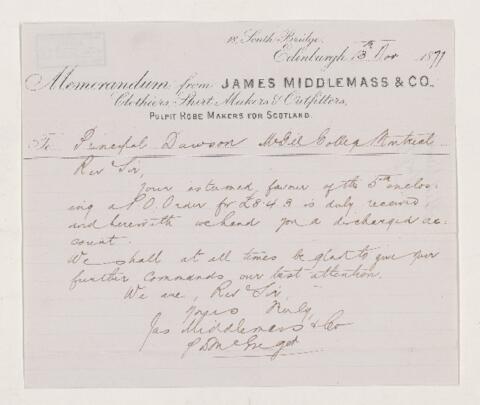 18, South Bridge,
Edinburgh 13th Nov 1877
Memorandum from JAMES MIDDLEMASS & CO.
Clothiers, Shirt Makers & Outfitters,
PULPIT ROBE MAKERS FOR SCOTLAND.
To Principal Dawson McGill College Montreal
Revd Sir,
Your esteemed favour of the 5th enclos
ing a P.O. Order for £8.4.3 is duly received,
and herewith we hand you a discharged ac-
count.
We shall at all times be glad to give your
further commands our best attention.
We are, Revd Sir,
Yours Truly,
Jas Middlemass & Co